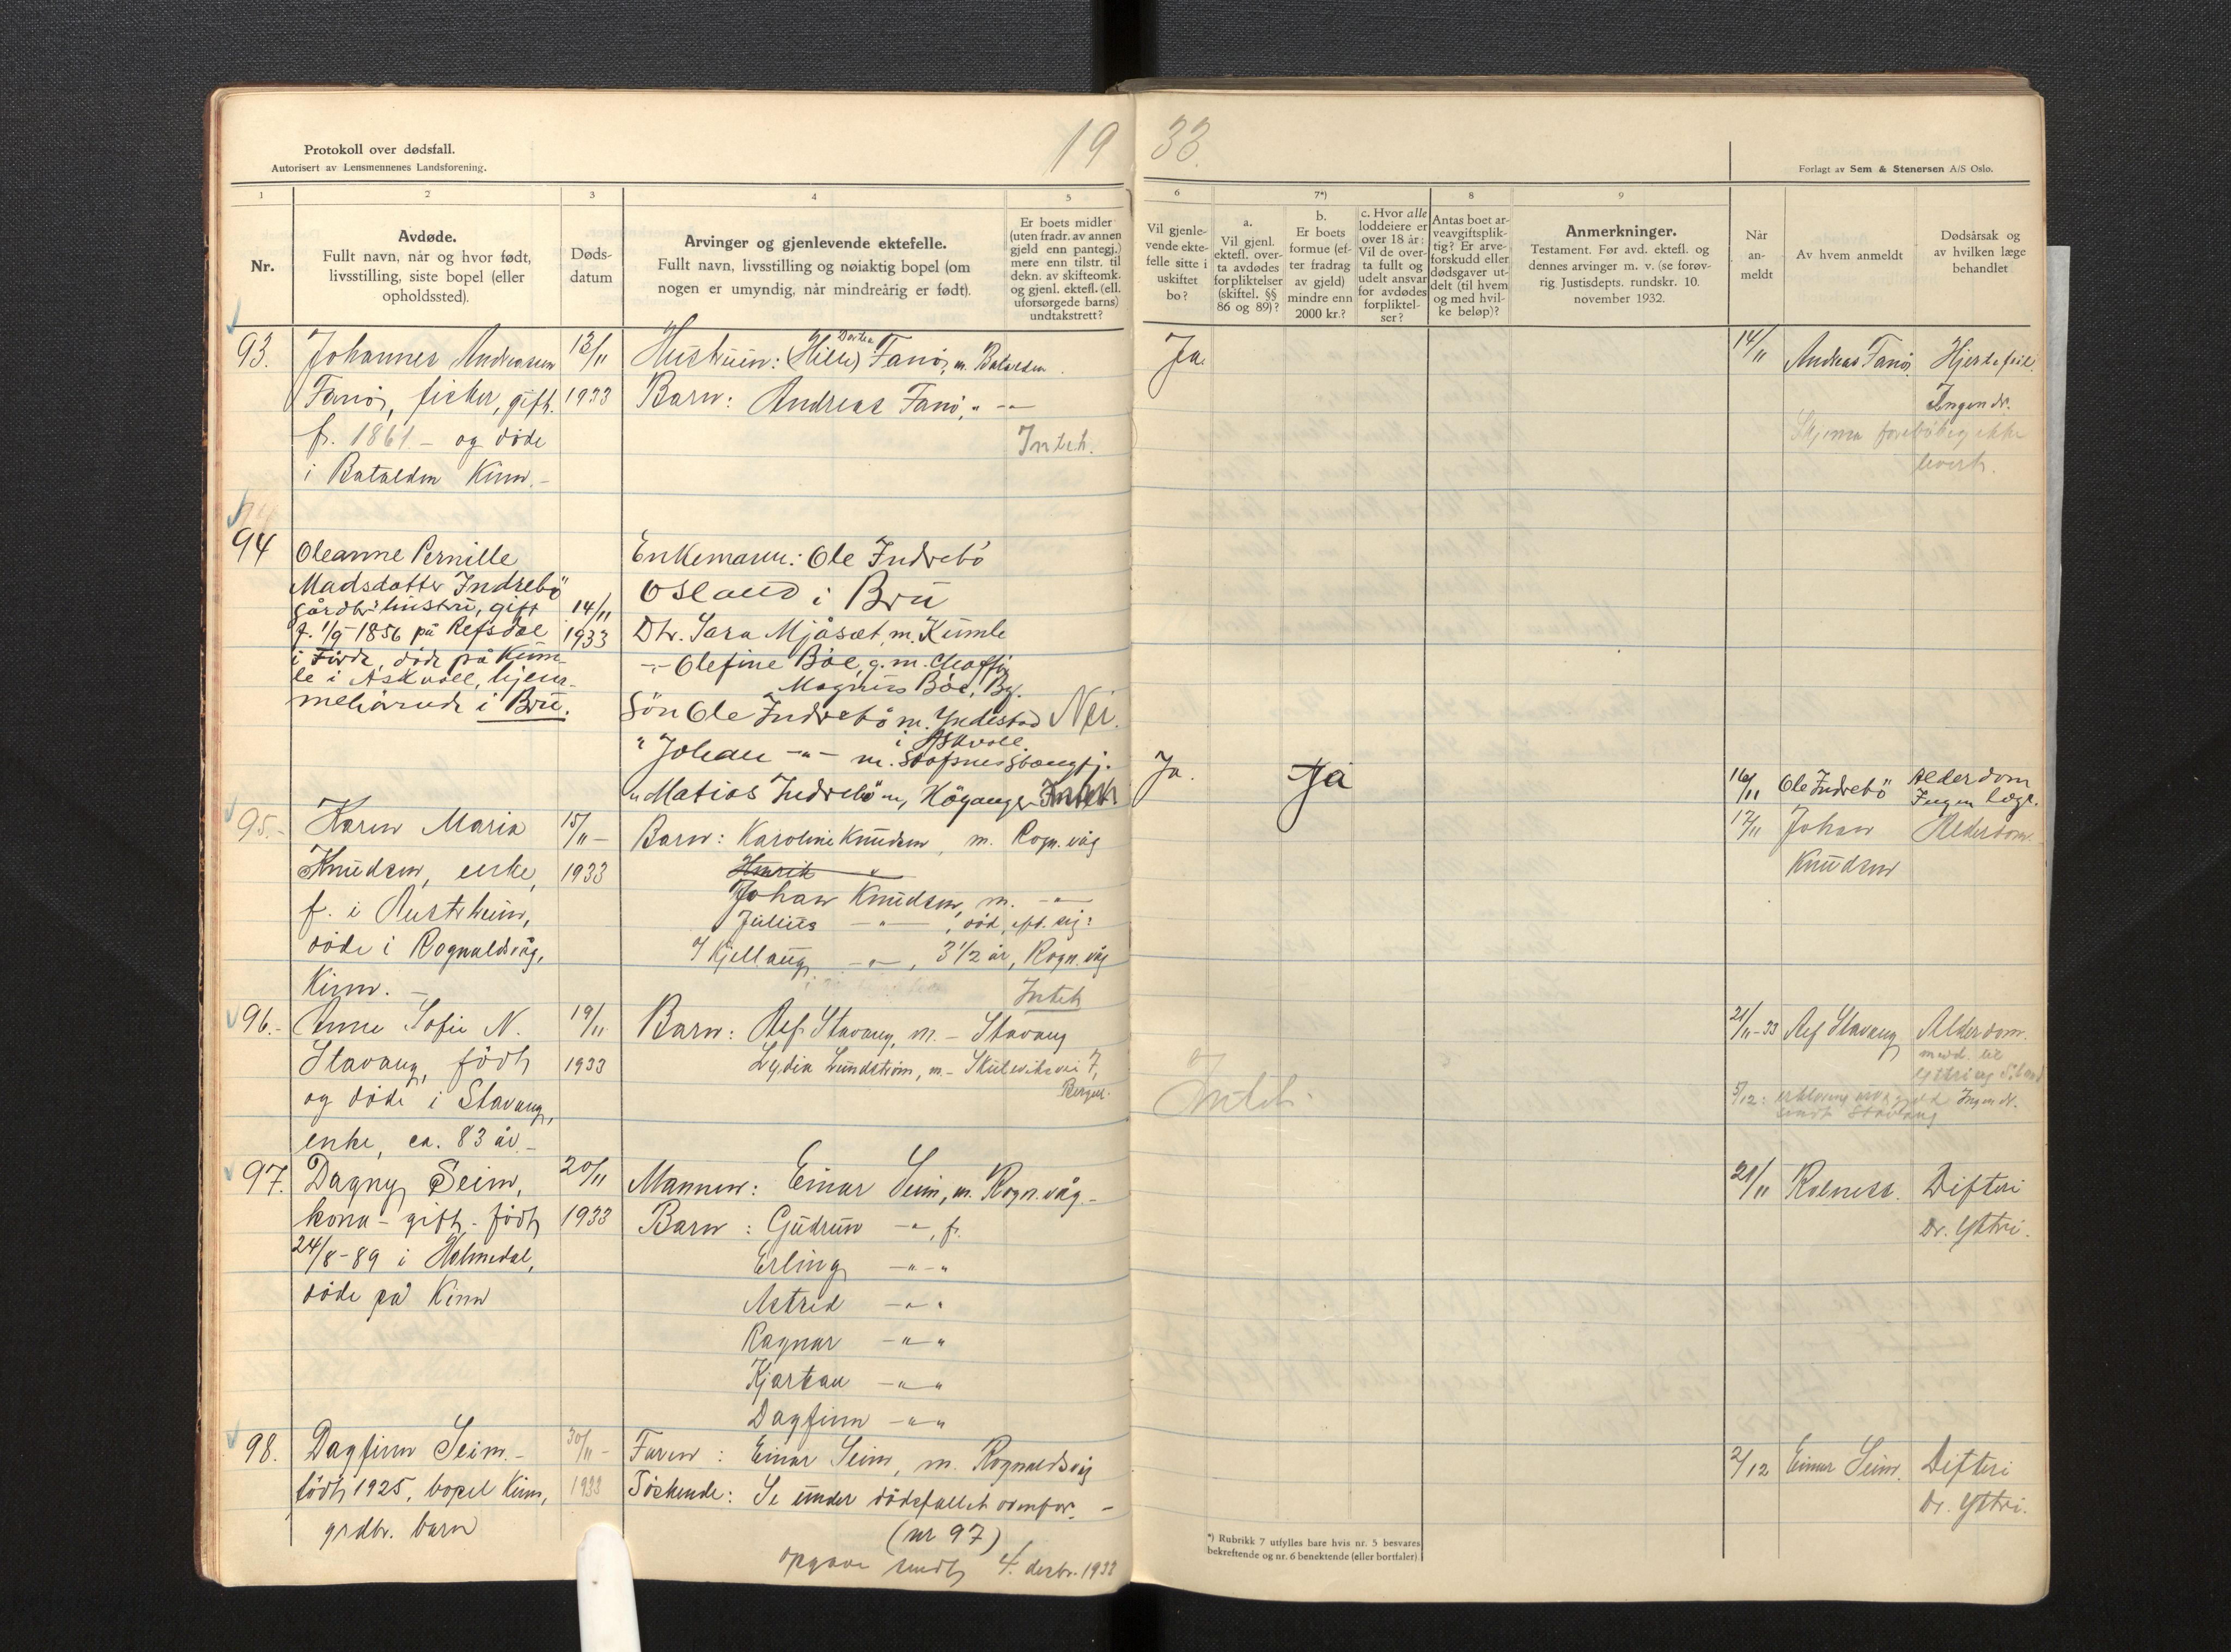 Protokoll over dødsfall.
Autorisert av Lensmennenes Landsforening.
19 33.
Forlagt av Sem & Stenersen A/S Oslo.
1 2 3 4 5
Nr.
Avdøde.
Fullt navn, når og hvor født,
livsstilling, siste bopel (eller
opholdssted).
Døds-
datum
Arvinger og gjenlevende ektefelle.
Fullt navn, livsstilling og nøiaktig bopel (om
nogen er umyndig, når mindreårig er født).
Er boets midler
(uten fradr. av annen
gjeld enn pantegj.)
mere enn tilstr. til
dekn. av skifteomk.
og gjenl. ektefl. (ell.
uforsørgede barns)
undtakstrett?
6 7*) 8 9
Vil gjenle-
vende ekte-
felle sitte i
uskiftet
bo?
a.
Vil gjenl.
ektefl. over-
ta avdødes
forpliktelser
(skiftel. §§
86 og 89)?
b.
Er boets
formue (ef-
ter fradrag
av gjeld)
mindre enn
2000 kr.?
c. Hvor alle
loddeiere er
over 18 år:
Vil de over-
ta fullt og
udelt ansvar
for avdødes
forpliktel-
ser?
Antas boet ar-
veavgiftsplik-
tig? Er arve-
forskudd eller
dødsgaver ut-
delt (til hvem
og med hvil-
ke beløp)?
Anmerkninger.
Testament. Før avd. ektefl. og
dennes arvinger m. v. (se forøv-
rig Justisdepts. rundskr. 10.
november 1932.
Når
an-
meldt
Av hvem anmeldt
Dødsårsak og
av hvilken læge
behandlet
93.
Johannes Andreasen
Fanø, fisker, gift.
f. 1861 - og døde
i Batalden Kinn.-
13/11
1933
Dortea
Hustruen: (Hille) Fanø, m. Batalden.
Barn: Andreas Fanø, " -"-
Intet.
Ja.
14/11
Andreas Fanø
Hjertefeil.
Ingen dr.
Skjema foreløbig ikke
levert.
94
Oleanne Pernille
Madsdotter Indrebö
gårdbr. hustru, gift
f. 1/9-1856 på Refsdal
i Förde, døde på Kum-
le i Askvoll, hjem-
mehörende i Bru.
14/11
1933
Enkemann: Ole Indrebö
Osland i Bru
Dtr. Sara Mjåset, m. Kumle
-"- Olefine Böe, g. m.
Magnus Böe, Bg.
Sön Ole Indrebö m. Yndestad
i Askvoll.
Nei.
" Johan -"- m. Stafsnes
" Matias Indrebö m, Höyanger Intet
Ja.
Ja
16/11
Ole Indrebö
Alderdom
Ingen læge.
95.-
Karen Maria
Knudsen, enke,
f. i Austrheim,
døde i Rognaldsvåg,
Kinn. -
15/11-
1933
Barn: Karoline Knudsen, m. Rogn.våg
Henrik "
Johan Knudsen, m. -"-
Julius -"-, död, eft. sig:
Kjellaug -"-, 3 1/2 år, Rogn.våg
Intet
17/11
Johan
Knudsen
Alderdom.
96.-
Anne Sofie N.
Stavang, født
og døde i Stavang,
enke, ca. 83 år.-
19/11
1933
Barn: Alf Stavang, m. - Stavang
Lydia Lundstrøm, m.- Skuleviksvei 7,
Bergen.
Intet.
21/11-33
Alf Stavang
Alderdom.
5/12:
Ingen dr.
sendt Stavang
97.
Dagny Seim,
kona - gift - født
24/8-89 i Holmedal,
døde på Kinn
20/11
1933
Mannen: Einar Seim, m. Rogn.våg.-
Barn: Gudrun -"-, f.
Erling -"- "
Astrid -"- "
Ragnar -"- "
Kjartan -"- "
Dagfinn -"- "
21/11
Difteri
Dr. Yttri.
98.
Dagfinn Seim.-
født 1925, bopel Kinn,
grdbr. barn
30/11-
1933
Faren: Einar Seim, m. Rognaldsvåg
Søskende: Se under dødsfallet ovenfor. -
(nr 97)
opgave sendt 4. desbr. 1933
2/12
Einar Seim.
Difteri
Dr. Yttri.
*) Rubrikk 7 utfylles bare hvis nr. 5 besvares
bekreftende og nr. 6 benektende (eller bortfaler).